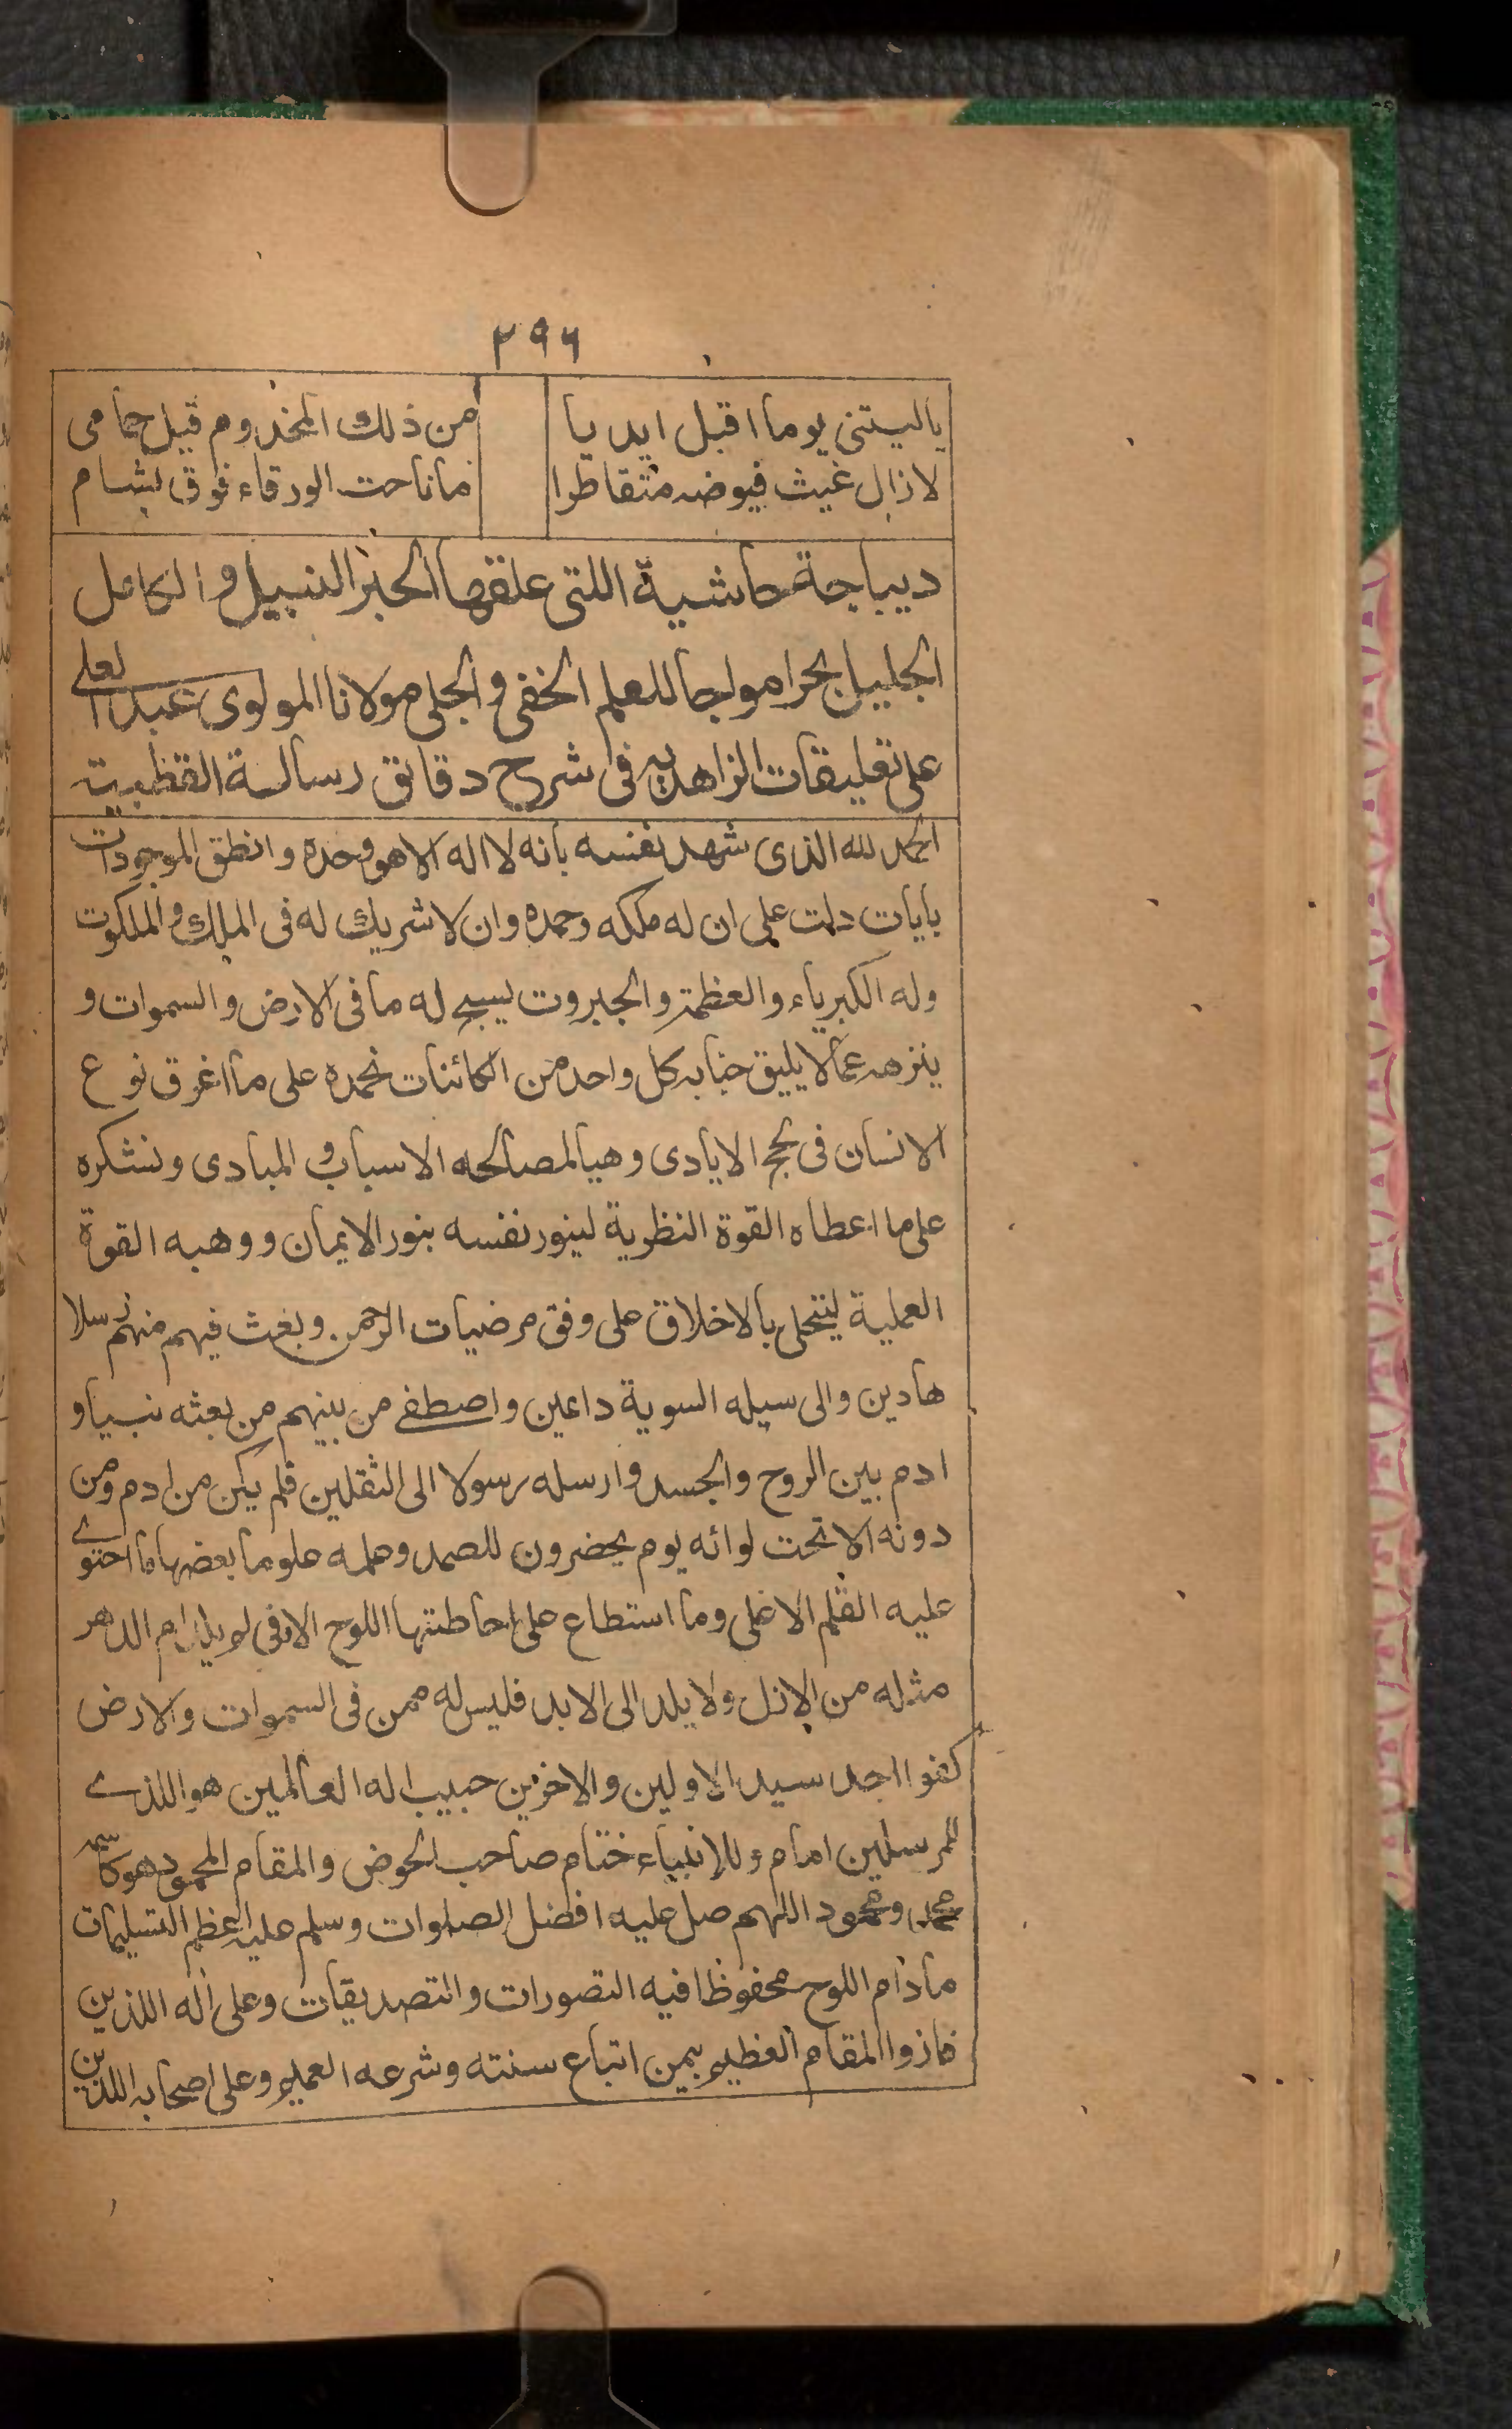 ٢٩٦
ياليتنى يوما اقبل ايديا من ذلك المخدوم قبل حمامى
لازال غيث فيوضه متقاطرا ماناحت الورقاء فوق بشام
ديباجة حاشية اللتى علقها الحبر النبيل والكامل
الجليل بحرا مواجا للعلم الخفى والجلى مولانا المولوى عبد العلى
على تعليقات الزاهديه فى شرح دقائق رسالة القطبية
الحمد لله الذى شهد نفسه بانه لا اله الا هو وحده وانطق الموجودات
بايات دلت على ان له ملكه وحمده وان لا شريك له فى الملك والملكوت
وله الكبرياء والعظمة والجبروت يسبح له ما فى الارض والسموات و
ينزهه عما لا يليق جنابه كل واحد من الكائنات نحمده على ما اغرق نوع
الانسان فى لجج الايادى وهيأ لمصالحه الاسباب والمبادى ونشكره
على ما اعطاه القوة النظرية لينور نفسه بنور الايمان ووهبه القوة
العملية ليتحلى بالاخلاق على وفق مرضيات الرحمن وبعث فيهم منهم رسلا
هادين والى سبيله السوية داعين واصطفى من بينهم من بعثه نبيا و
ادم بين الروح والجسد وارسله رسولا الى الثقلين فلم يكن من ادم ومن
دونه الا تحت لوائه يوم يحضرون للصمد وعلمه علوما بعضها ما احتوى
عليه القلم الاعلى وما استطاع على احاطتها اللوح الاوفى لم يلد ام الدهر
مثله من الازل ولا يلد الى الابد فليس له ممن فى السموات والارض
كفوا احد سيد الاولين والاخرين حبيب اله العالمين هو اللذى
للمرسلين امام وللانبياء ختام صاحب الحوض والمقام المحمود هو كاسمه
محمد ومحمود اللهم صل عليه افضل الصلوات وسلم عليه اعظم التسليمات
مادام اللوح محفوظا فيه التصورات والتصديقات وعلى اله اللذين
فازوا المقام العظيم بيمن اتباع سنته وشرعه العميم وعلى اصحابه اللذين